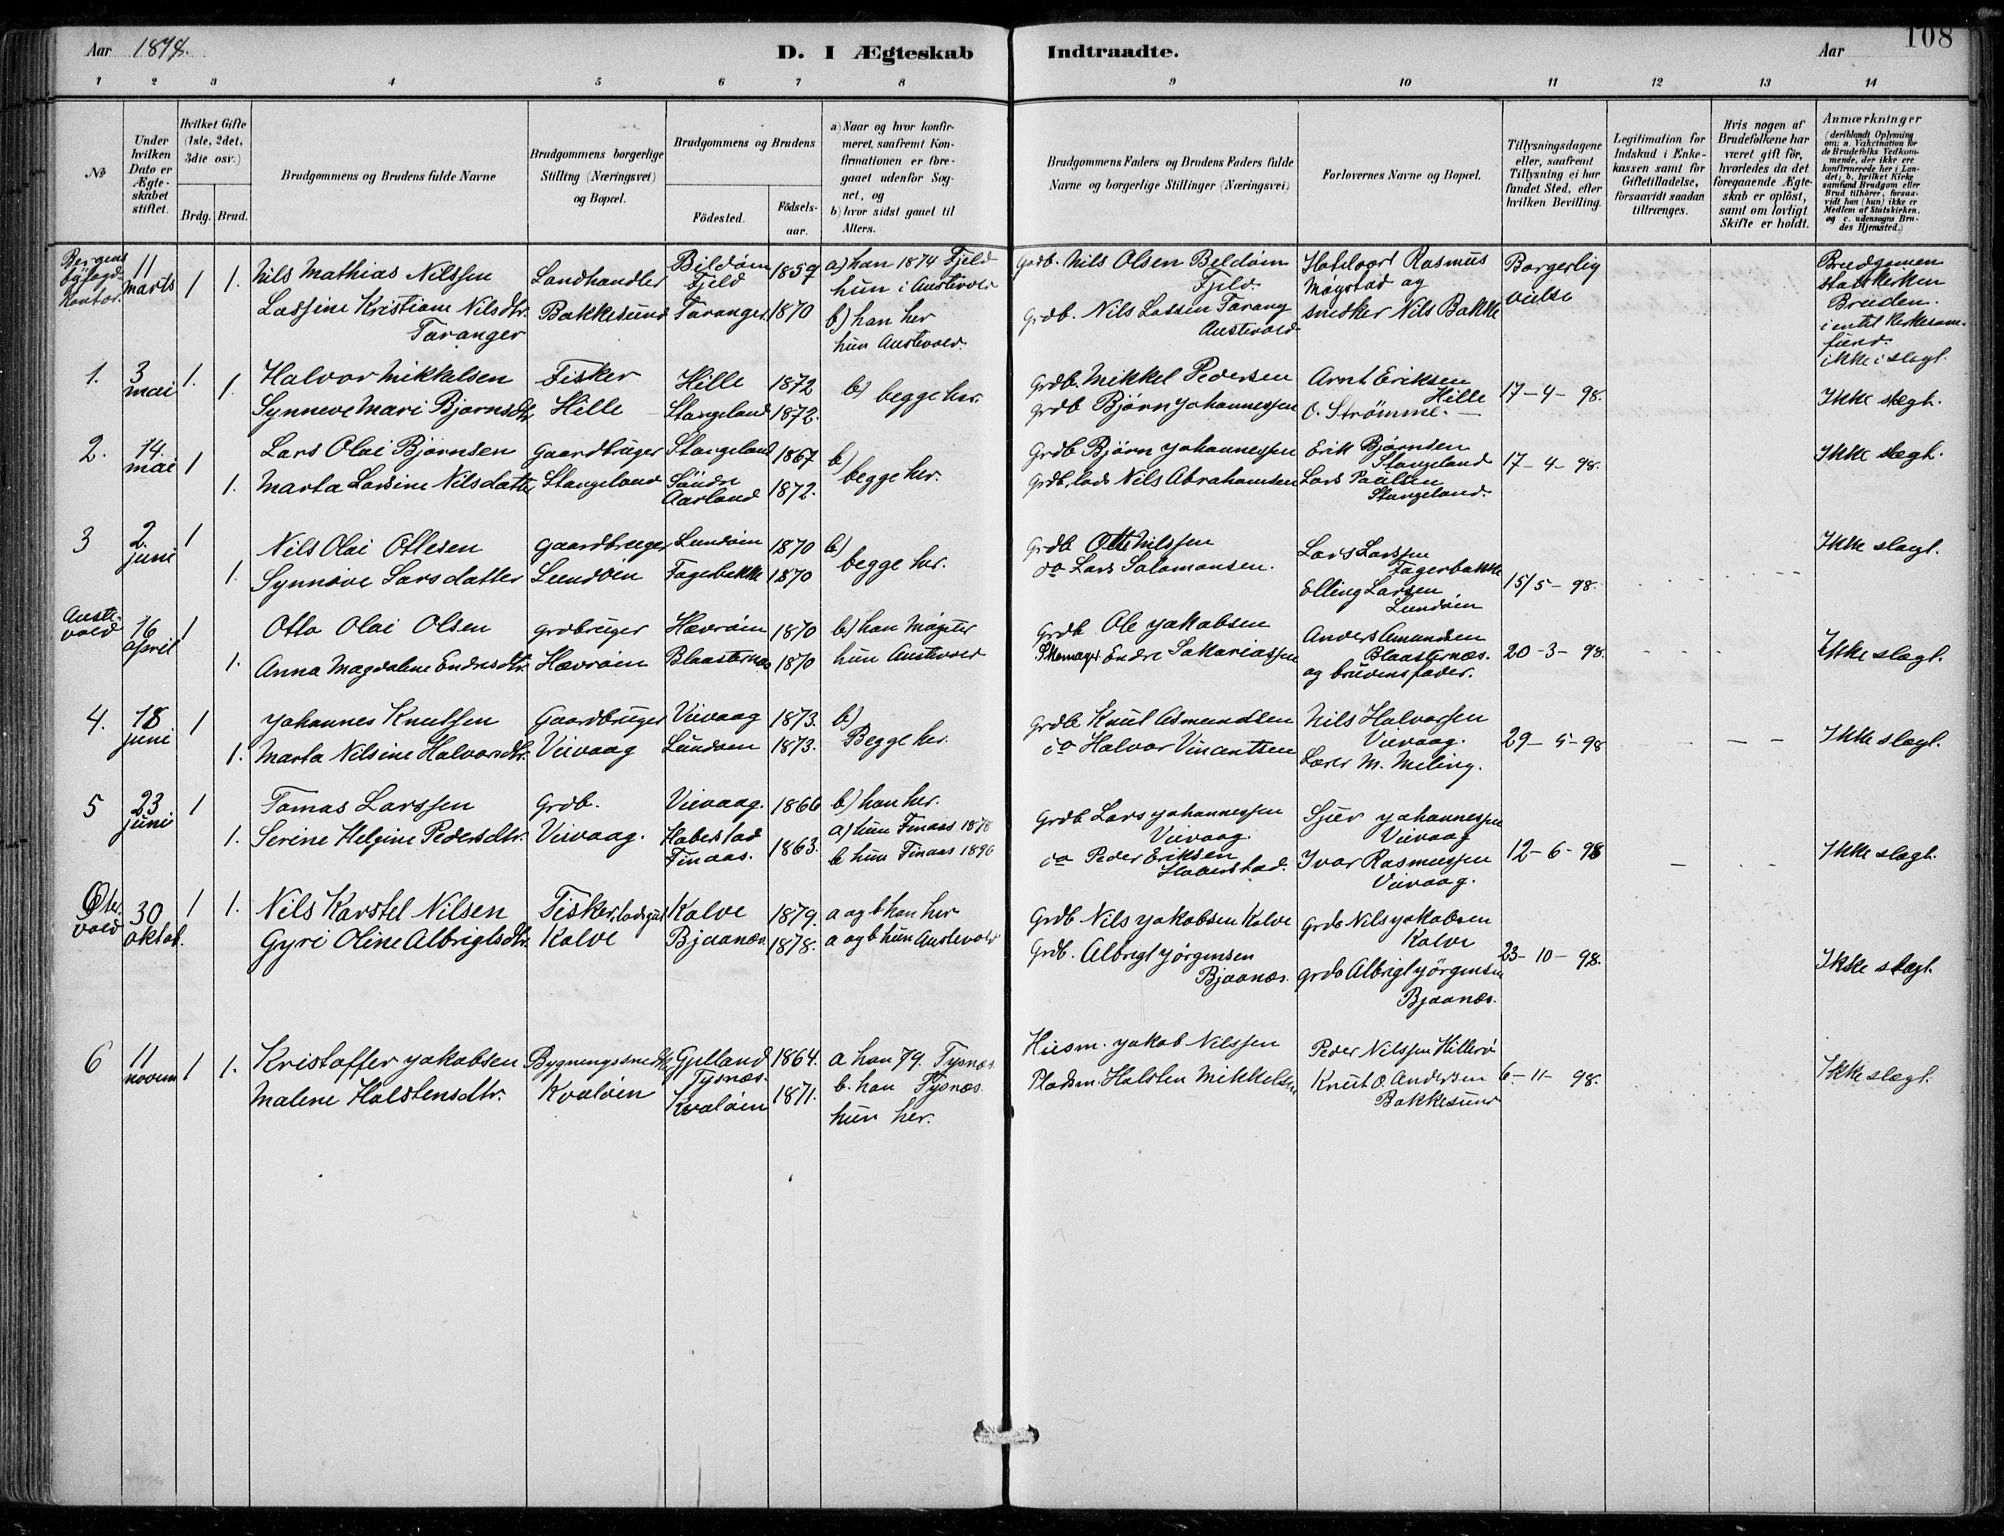 Aar 1898.
D. I Ægteskab Indtraadte.
Aar
108
1 2 3 4 5 6 7 8 9 10 11 12 13 14
No
Under hvilken Dato er Ægteskabet stiftet.
Hvilket Gifte (1ste, 2det, 3die osv.)
Brdg. Brud.
Brudgommens og Brudens fulde Navne
Brudgommens borgerlige Stilling (Næringsvei) og Bopæl.
Brudgommens og Brudens
Fødested.
Fødselsaar.
a) Naar og hvor konfirmeret, saafremt Konfirmationen er foregaaet udenfor Sognet, og
b) hvor sidst gaaet til Alters.
Brudgommens Faders og Brudens Faders fulde Navne og borgerlige Stillinger (Næringsvei)
Forlovernes Navne og Bopæl.
Tillysningsdagene eller, saafremt Tillysning ei har fundet Sted, efter hvilken Bevilling.
Legitimation for Indskud i Enkekassen samt for Giftetilladelse, forsaavidt saadan tiltrænges.
Hvis nogen af Brudefolkene har været gift før, hvorledes da det foregaaende Ægteskab er opløst, samt om lovligt Skifte er holdt.
Anmærkninger
(deriblandt Oplysning om: a. Vakcination for de Brudefolks Vedkommende, der ikke ere konfirmerede her i Landet; b. hvilket Kirkesamfund Brudgom eller Brud tilhører, forsaavidt han (hun) ikke er Medlem af Statskirken, og c. udensogns Brudes Hjemsted.)
Bergens byfogdkontor. 11 marts 1 1. Nils Mathias Nilssen Landhandler Bildøen Fjeld 1859 a) han 1874 Fjeld Gdb. Nils Olsen Beldøin Fjeld. Rasmus Møgstad og Borgerlig vielse Brudgomen statskirken
Lassine Kristiane Nilsdtr. Taranger Bakkesund Taranger 1870 hun i Austevold b) han her hun Austevold. Grdb. Nils Lassen Tarang Austevold snedker Nils Bakke Bruden. ikke i slegt.
1. 3 mai 1. Halvor Mikkelsen Fisker Hille 1872 b) begge her. Grdb. Mikkel Pedersen Arnt Eriksen Hille 17-4-98. Ikke slegt.
1. Synneve Mari Bjørnsdtr. Hille Stangeland 1872. Grdb Bjørn Johannessen O. Strømme.
2. 14. mai 1 Lars Olai Bjørnsen Gaardbruger Stangeland 1867 b) begge her. Grdb Bjørn Johannessen Erik Bjørnsen Stangeland 17-4-98. Ikke slegt.
1. Marta Larsine Nilsdatter Stangeland Søndre Aarland 1872. Grdb. Nils Abrahamsen Lars Paulsen Stangeland.
3 2. juni 1 Nils Olai Ottesen Gaardbruger Lundøin 1870 b) begge her. Grdb Otte Nilssen Lars Larssen Fagerbakke 15/5-98. Ikke slegt.
1. Synnøve Larsdatter Lundøin Fagerbakke 1870 do Lars Salamonsen. Elling Larsen Lundøin
Austevold 16 April 1 Otto Olai Olsen Grdbruger Hævrøin 1870 b) han Møgster Grdb Ole Jakobsen Anders Amundsen Blaasternæs. 20-3-98. Ikke slegt.
1. Anna Magdalene Endresdtr. Hævrøin Blaasternæs 1870 hun Austevold Endre Sakariassen og brudens fader.
4. 18 juni 1 Johannes Knutsen Gaardbruger Vievaag 1873. b) Begge her. Grdb Knut Asmundsen Nils Halvorsen Vievaag. 29-5-98 Ikke slegt.
1. Marta Nilsine Halvorsdtr. Veivaag Lundøin 1873. do Halvor Vincentsen Lærer M. Meling.
5 23 juni 1 Tomas Larssen Grdb. Vievaag. 1866 b) han her. Grdb Lars Johannessen Veivaag. Sjur Johannessen Veivaag 12-6-98 Ikke slegt.
1. Serine Helgine Pedersdtr. Veivaag. Haberstad Finaas. 1863. a) hun Finaas 1878 b hun Finaas 1896 do Peder Eriksen Haberstad. Ivar Rasmussen Veivaag.
30 oktob. 1 1. Nils Karstel Nilsen Fisker, Kalve 1879. a og b han her Grdb Nils Jakobsen Kalve Grdb Nils Jakobsen Kalve 23-10-98. Ikke slegt.
Gyri Oline Albrigtsdtr. Kalve Bjaanæs. 1878. a og b hun Austevold Grdb. Albrigt Jørgensen Bjaanæs. Grdb Albrigt Jørgensen Bjaanæs.
6 11 novem 1 1. Kristoffer Jakobsen Bygningssnedker Gjelland Tysnæs. 1864. a han 79. Tysnæs Husm. Jakob Nilssen Peder Nilssen Hillerø 6-11-98. Ikke slegt.
Malene Halstensdtr. Kvaløin Kvaløin 1871. b. han Tysnæs. hun her. Pladsm. Halsten Mikkelsen Knut O. Andersen Bakkesund